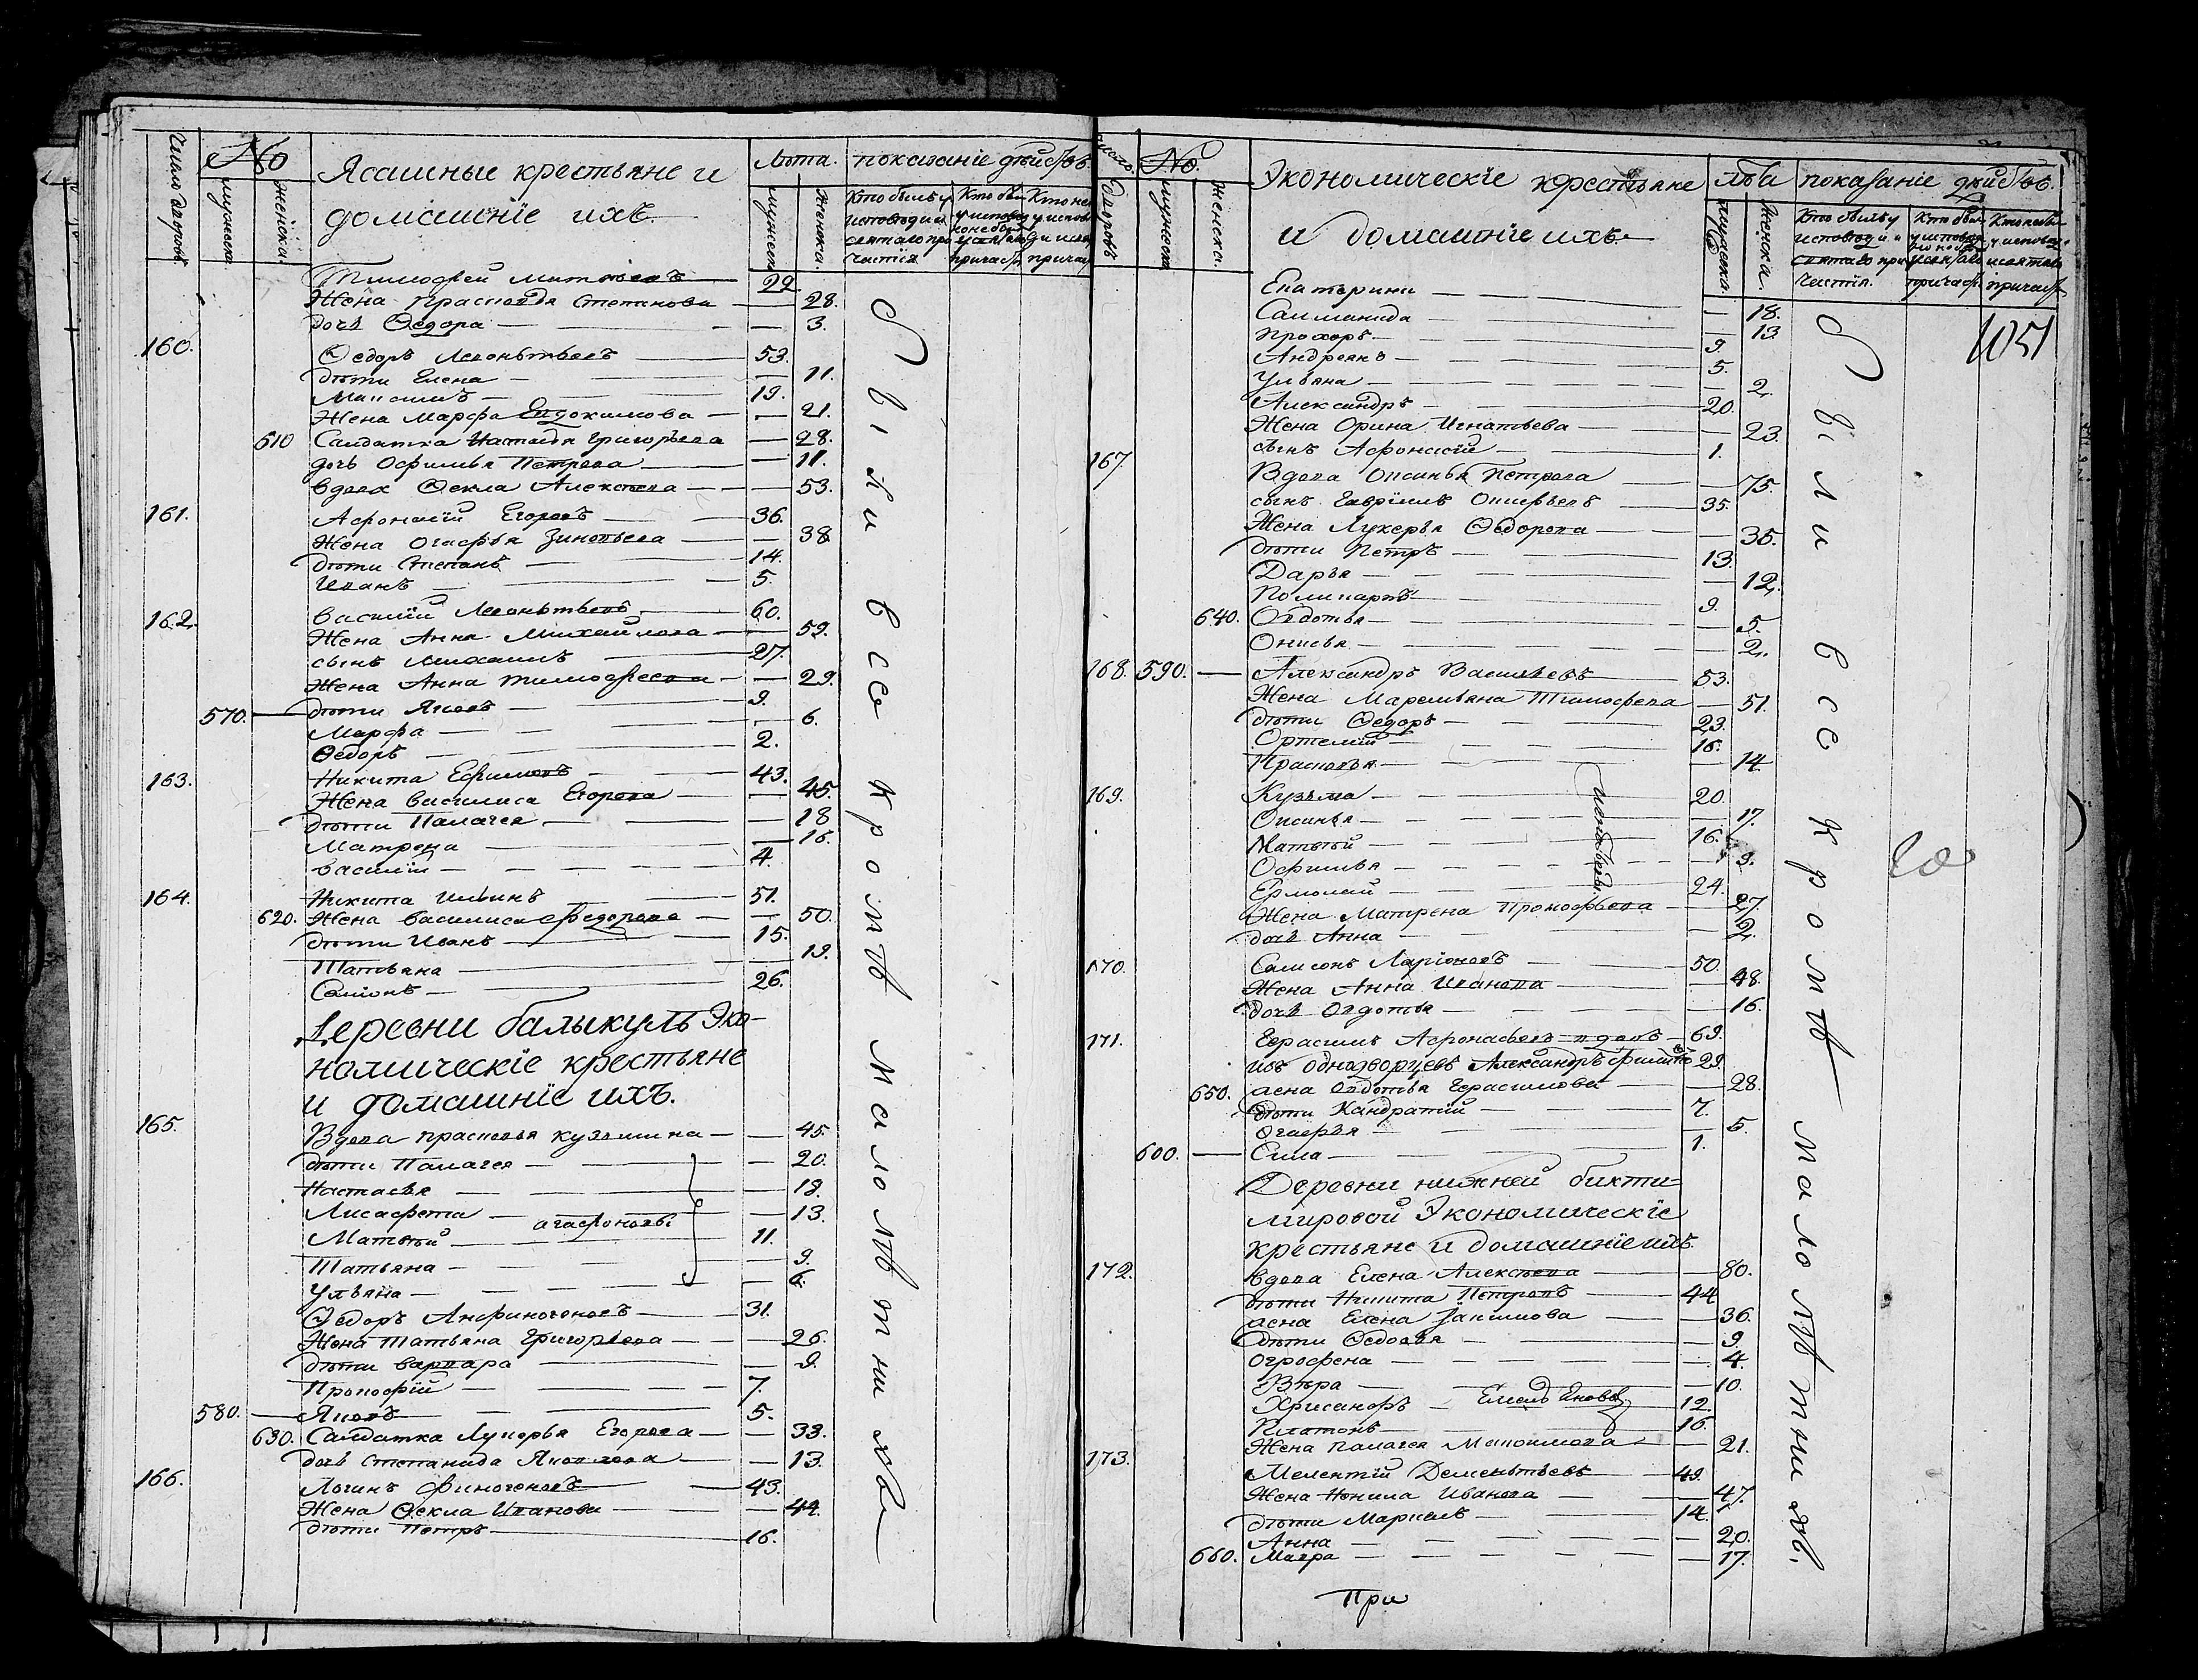 Число дворовъ
No
мужеска.
женска.
Ясашные крестьяне и
домашнїе ихъ.
Лѣта.
мужеска
женска.
показанїе дѣйствъ.
Кто былъ у
исповѣди и
святаго при
частїя
Тимофей Матвѣевъ — 29
Жена Прасковья Степанова — 28.
дочь Ѳедора — 3.
160. Ѳедоръ Леоньтьевъ — 53.
дѣти Елена — 11.
Максимъ — 19.
Жена Марфа Евдокимова — 21.
610 Салдатка Настасья Григорьева — 28.
дочь Офимья Петрова — 11.
вдова Ѳекла Алексѣева — 53.
161. Афонасїй Егоровъ — 36.
Жена Огафья Зиновьева — 38
дѣти Степанъ — 14.
Иванъ — 5.
162. василїй Леоньтьевъ — 60.
Жена Анна Михайлова — 59.
сынъ Михаилъ — 27.
Жена Анна тимофеева — 29.
570. — дѣти Яковъ — 9.
Марфа — 6.
Ѳедоръ — 2.
163. Никита Ефимовъ — 43.
Жена василиса Егорова — 45.
дѣти Палагея — 18
Матрена — 16.
василїй — 4.
164. Никита Ильинъ — 51.
620. Жена василиса федорова — 50.
дѣти Иванъ — 15.
Татьяна — 19.
Семїонъ — 26.
Деревни балыкуль Эко-
номическїе крестьяне
и домашнїе ихъ.
165. Вдова прасковья кузьмина — 45.
дѣти Палагея — 20.
Настасья — 18.
Лисафета — 13.
агафоновы
Матвѣй — 11.
Татьяна — 9.
Ульяна — 6.
Ѳедоръ Анфиногеновъ — 31.
Жена Татьяна Григорьева — 26.
дѣти варвара — 9.
Прокофїй — 7.
580. — Яковъ — 5.
630. Салдатка Лукерья Егорова — 33.
дочь степанида Яковлева — 13.
166. Логинъ Финогеновъ — 43.
Жена Ѳекла Иванова — 44.
дѣти Петръ — 16.
были все кромѣ малолѣтнихъ
дворовъ
No.
мужеска
женска.
Экономическїе крестьяне
и домашнїе ихъ
лѣта
мужеска.
женска.
показанїе дѣйствъ.
Кто былъ у
исповѣди и
святаго при
частїя.
1051
Екатерина — 18.
Саломанида — 13.
Прохоръ — 9.
Андреянъ — 5.
Ульяна — 2.
Александръ — 20.
Жена Орина Игнатьева — 23.
сынъ Афонасїй — 1.
167. Вдова Оксинья Петрова — 75.
сынъ Гаврїилъ Онисьевъ 35.
Жена Лукерья Ѳедорова — 35.
дѣти Петръ — 13.
Дарья — 12.
Поликарпъ — 9.
640. Овдотья — 5.
Онисья — 2.
168. 590. — Александръ Васильевъ — 53.
Жена Маремьяна Тимофева — 51.
дѣти Ѳедоръ — 23.
Ортемїй — 16.
Прасковья — 14.
169. Кузьма — 20.
Оксинья — 17.
Матвѣй — 16.
Офимья — 9.
Ермолай — 24.
Жена Матрена Прокофьева — 27.
дочь Анна — 2.
170. Самсонъ Ларїоновъ — 50.
Жена Анна Иванова — 48.
дочь Овдотья — 16.
171. Герасимъ Афонасьевъ вдовъ — 69.
изъ однодворцевъ Александръ — 29.
650. жена Овдотья Герасимова — 28.
дѣти Кандратїй — 7.
Огафья — 5.
600. — Сила — 1.
Деревни нижней бикти-
мировой Экономическїе
крестьяне и домашнїе ихъ.
172. вдова Елена Алексѣева — 80.
дѣти Никита Петровъ — 44
жена Елена Якимова — 36.
дѣти Ѳедосья — 9.
Огрофена — 4.
Вѣра — 10.
Хрисанфъ — 12.
Платонъ — 16.
Жена палагея Максимова — 21.
173. Мелентїй Дементьевъ — 49.
Жена Ненила Иванова — 47.
дѣти Маркелъ — 14.
Анна — 20.
660. Мавра — 17.
были все кромѣ малолѣтнихъ.
При